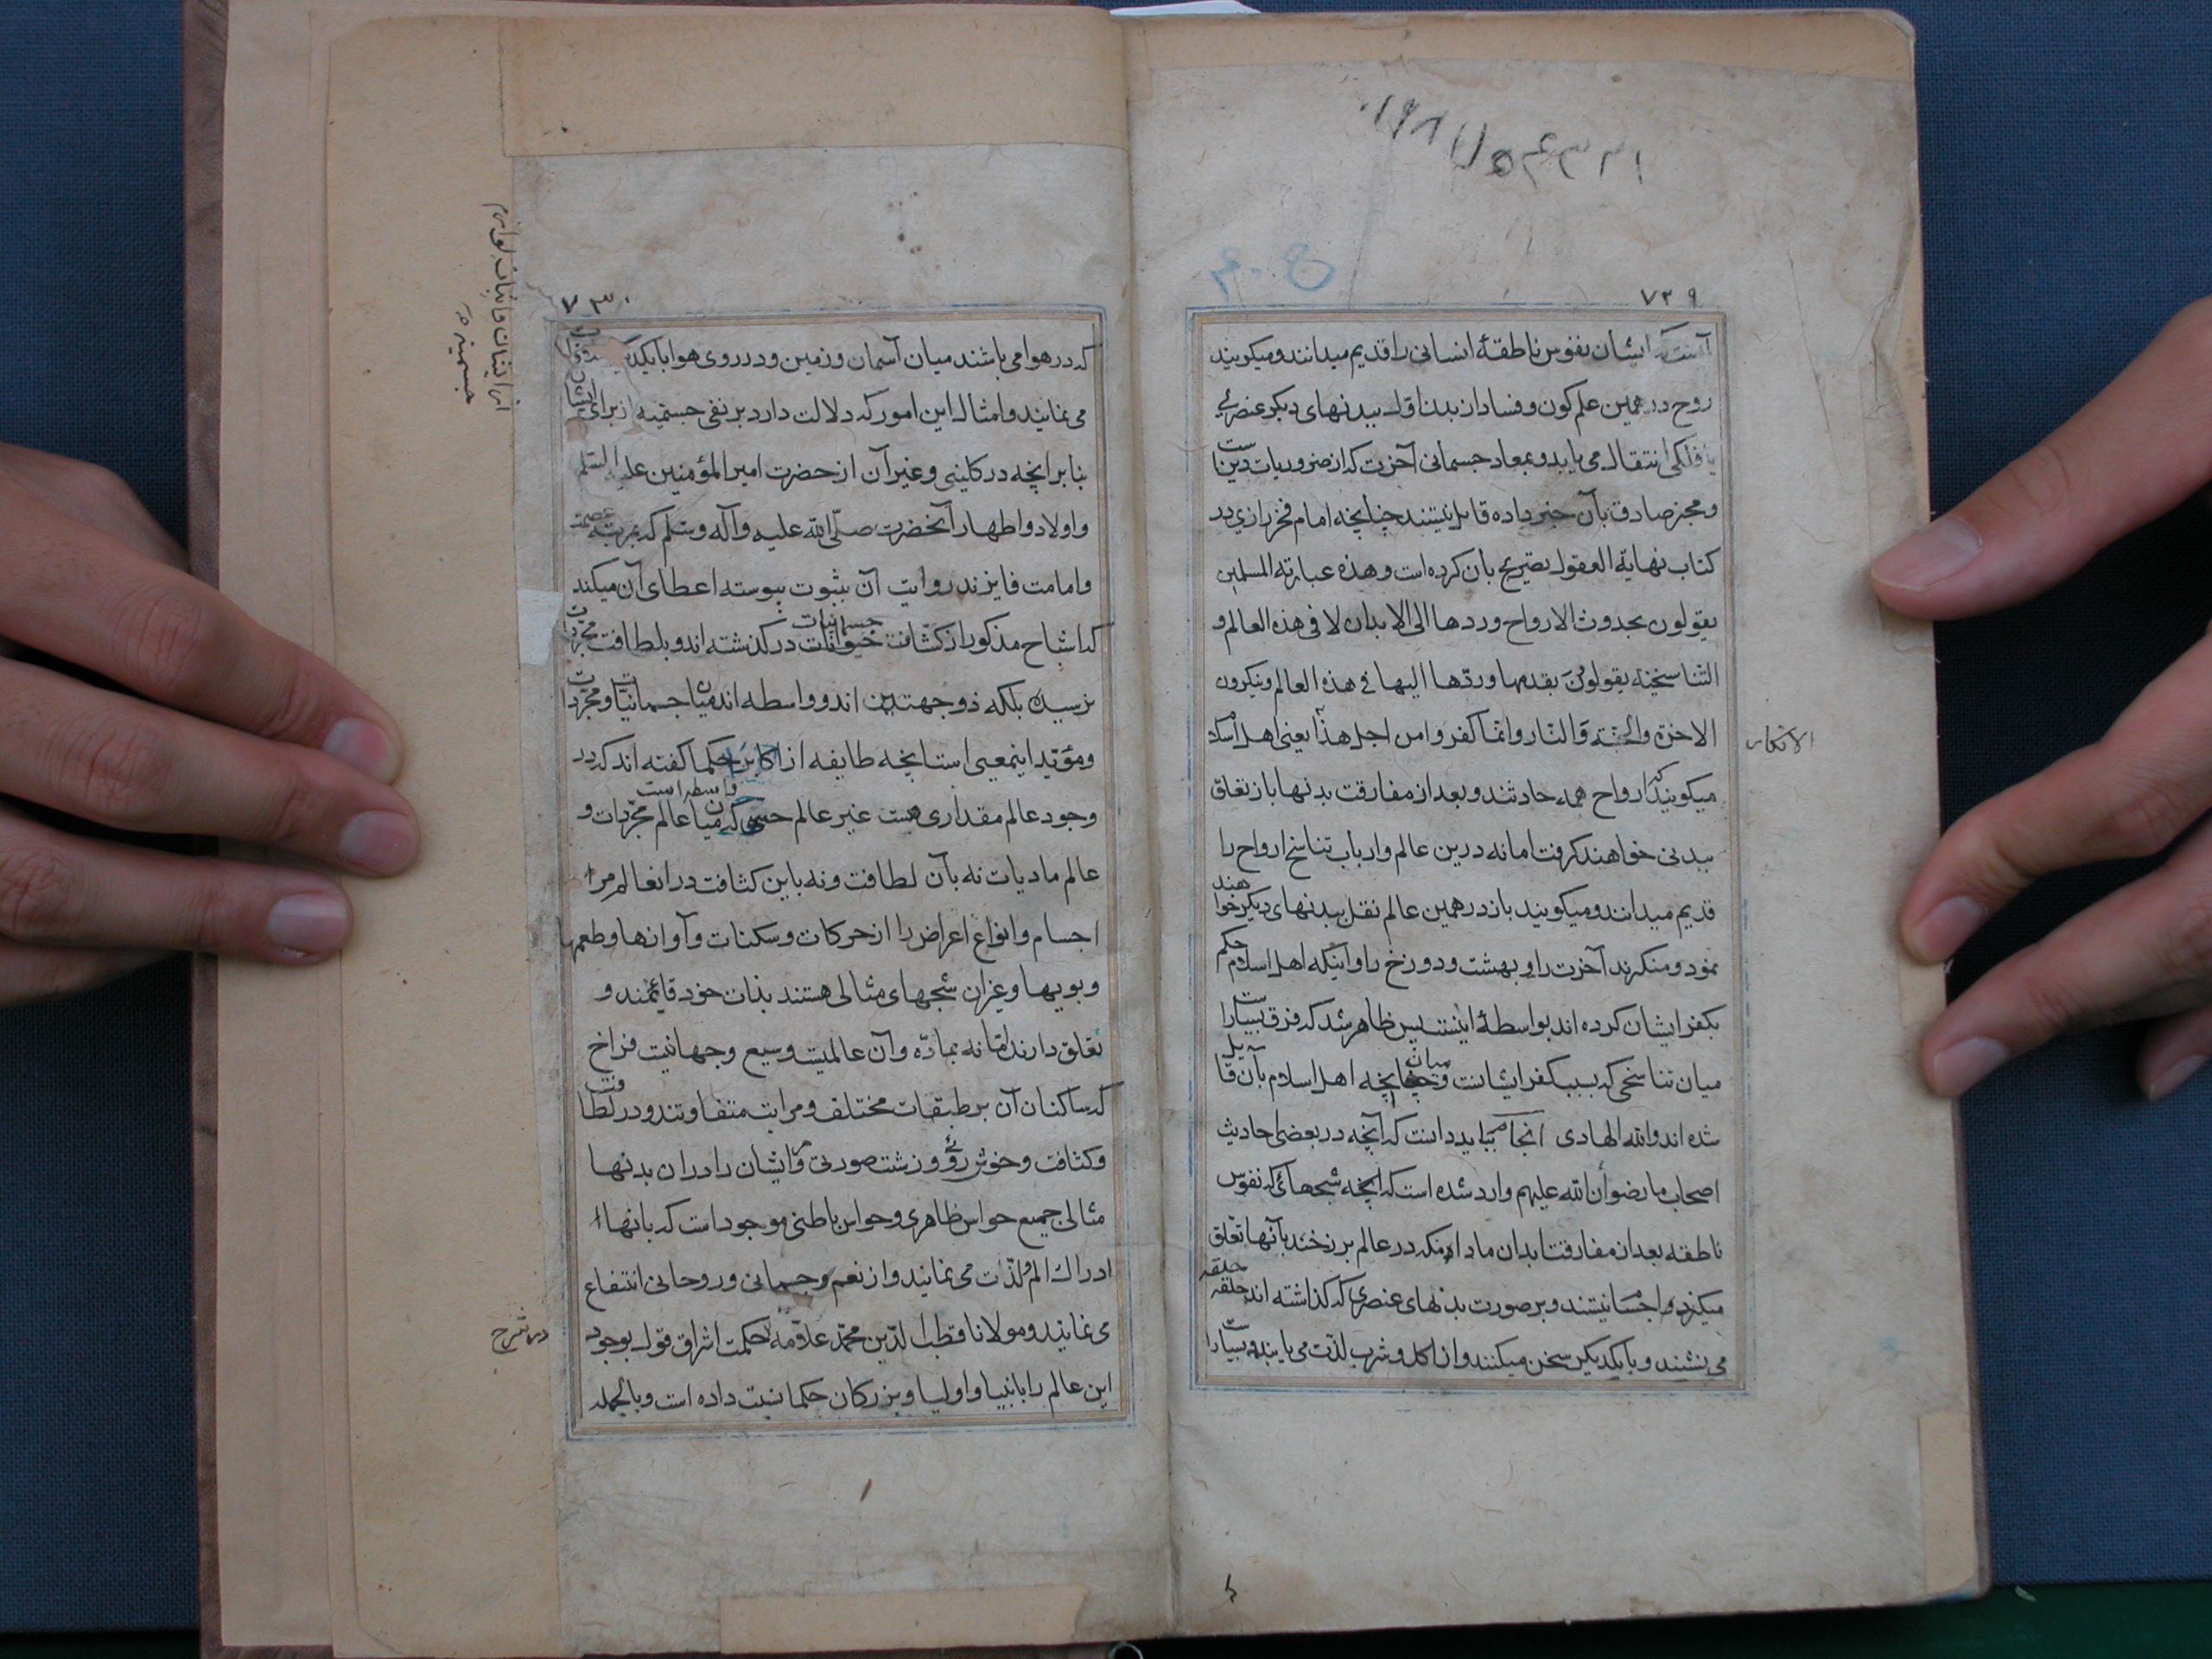 ٧٢٩
آنست که ایشان نفوس ناطقهٔ انسانی را قدیم میدانند و میکویند
روح در همین علم کون و فساد از بدنا قله ببدنهای دیکر عنصری
یا فلکی انتقال می یابد و بمعاد جسمانی آخرت که از ضروریات دینست
و مخبر صادق بآن خبر داده قایل نیستند چنانچه امام فخر رازی در
کتاب نهایة العقول تصریح بآن کرده است و هذه عبارته المسلمین
یقولون بحدوث الارواح و ردها الی الابدان لا فی هذه العالم و
التناسخیة یقولون بقدمها و ردّها الیها فی هذه العالم و ینکرون
الاخرة و الجنّة و النّار و انّما کفروا من اجل هذا یعنی اهل اسلام
الانکار
میکویند که ارواح همه حادثند و بعد از مفارقت بدنها باز تعلق
ببدنی خواهند کرفت اما نه درین عالم و ارباب تناسخ ارواح را
قدیم میدانند و میکویند باز در همین عالم نقل ببدنهای دیکر خواهند
نمود و منکرند آخرت را و بهشت و دوزخ را و اینکه اهل اسلام حکم
بکفر ایشان کرده اند بواسطهٔ اینست پس ظاهر شد که فرق بسیار است
میان تناسخی که بسبب کفر ایشانست و میان آنچه اهل اسلام بآن قایل
شده اند و الله الهادی اینجا بباید دانست که آنچه در بعضی احادیث
اصحاب ما رضوان الله علیهم وارد شده است که آنچه شبحهائی که نفوس
ناطقه بعد از مفارقت ابدان مادام که در عالم برزخند بآنها تعلق
میکیرد اجسام نیستند و بر صورت بدنهای عنصری که کذاشته اند حلقه حلقه
می نشینند و با یکدیکر سخن میکنند و از اکل و شرب لذّت می یابند و بسیار است
٧٣٠
که در هوا می باشند میان آسمان و زمین و در روی هوا با یکدیکر
می نمایند و امثال این امور که دلالت دارد بر نفی جسمیّه از برای ایشان
بنابر آنچه در کلینی و غیر آن از حضرت امیر المؤمنین علیه السّلم
و اولاد و اطهار آنحضرت صلّی الله علیه و آله و سلم که بمرتبه عصمت
و امامت فایزند روایت آن بثبوت پیوسته اعطای آن میکند
که اشباح مذکور از کثافت جسمانیات در کذشته اند و بلطافت مجرّدات
نرسیده بلکه ذو جهتین اند و واسطه اند میان جسمانیّات و مجرّدات
و مؤیّد اینمعنی است آنچه طایفه از اکابر حکما کفته اند که در
وجود عالم مقداری هست غیر عالم حسّی که واسطه است میان عالم مجرّدات و
عالم مادیات نه بآن لطافت و نه باین کثافت در آنعالم مر
اجسام و انواع اعراض را از حرکات و سکنات و آوازها و طعمها
و بویها و غیر آن شبحهای مثالی هستند بذات خود قایمند و
تعلق دارند امّا نه بمادّه و آن عالمیست وسیع و جهانیست فراخ
که ساکنان آن بر طبقات مختلف و مراتب متفاوتند در لطافت
و کثافت و خوش روئی و زشت صورتی و ایشان را در آن بدنها
مثالی جمیع حواس ظاهری و حواس باطنی موجود است که بانها
ادراک الم و لذّت می نمایند و از نعم جسمانی و روحانی انتفاع
می نمایند و مولانا قطب الدّین محمّد علّامه حکمت اشراق قول بوجود
در شرح
این عالم را بانبیا و اولیا و بزرکان حکما نسبت داده است و بالجمله